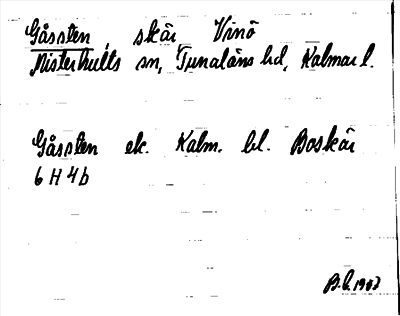 Gåssten skär Vinö
Misterhults sn, Tunaläns hd, Kalmar l.
Gåssten ek. Kalm. bl. Boskär
6 H 4b